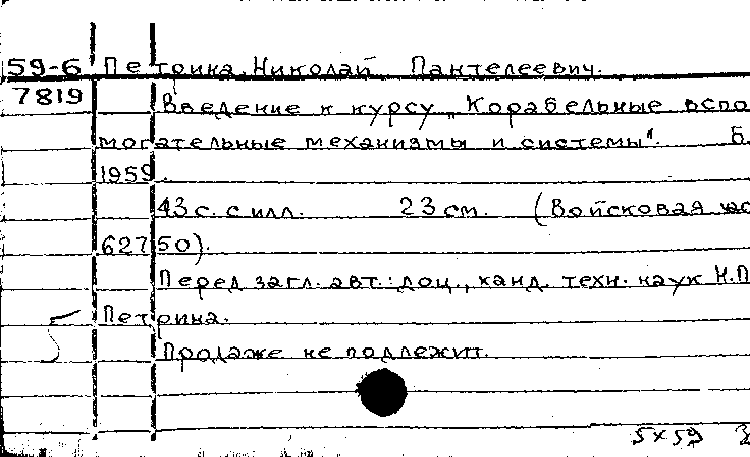 59-6 Петрина, Николай Пантелеевич.
7819 Введение к курсу „Корабельные вспо
могательные механизмы и системы“. Б.
1959.
43 с. с илл. 23 см. (Войсковая час
62750).
Перед загл. авт.: доц., канд. техн. наук Н.П
Петрина.
Продаже не подлежит.
5x59